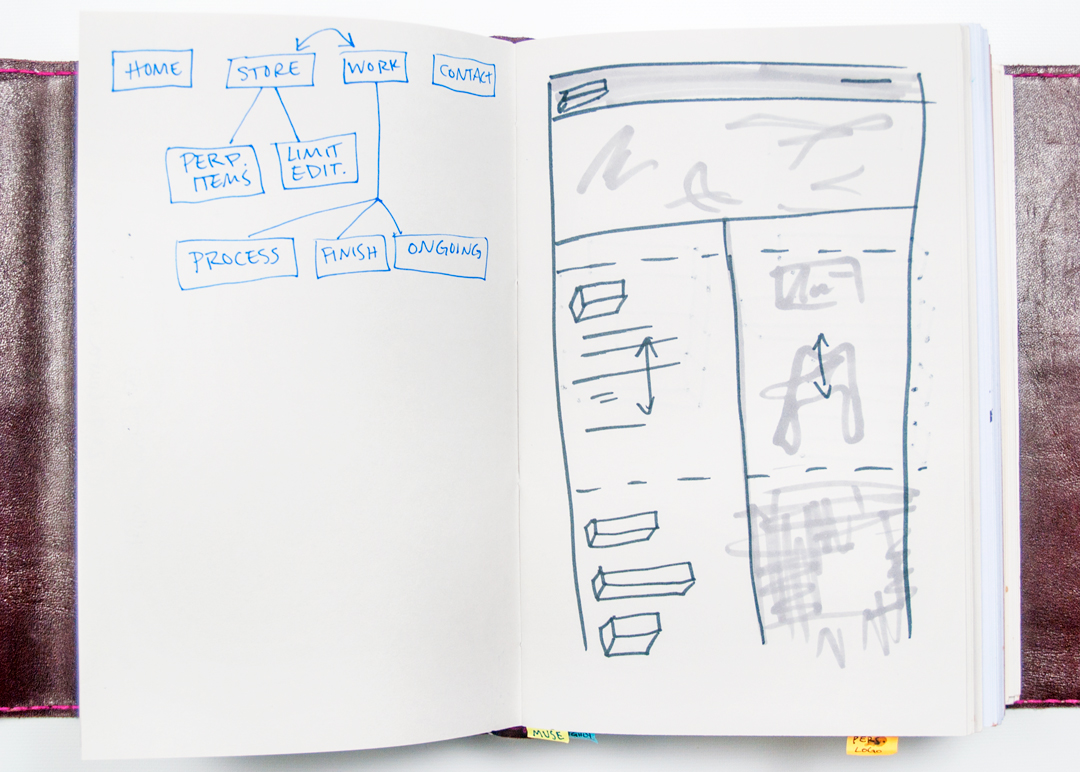 HOME
STORE
WORK
CONTACT
PERP.
ITEMS
LIMIT
EDIT.
PROCESS
FINISH
ONGOING
MUSE
PERS.
LOGO